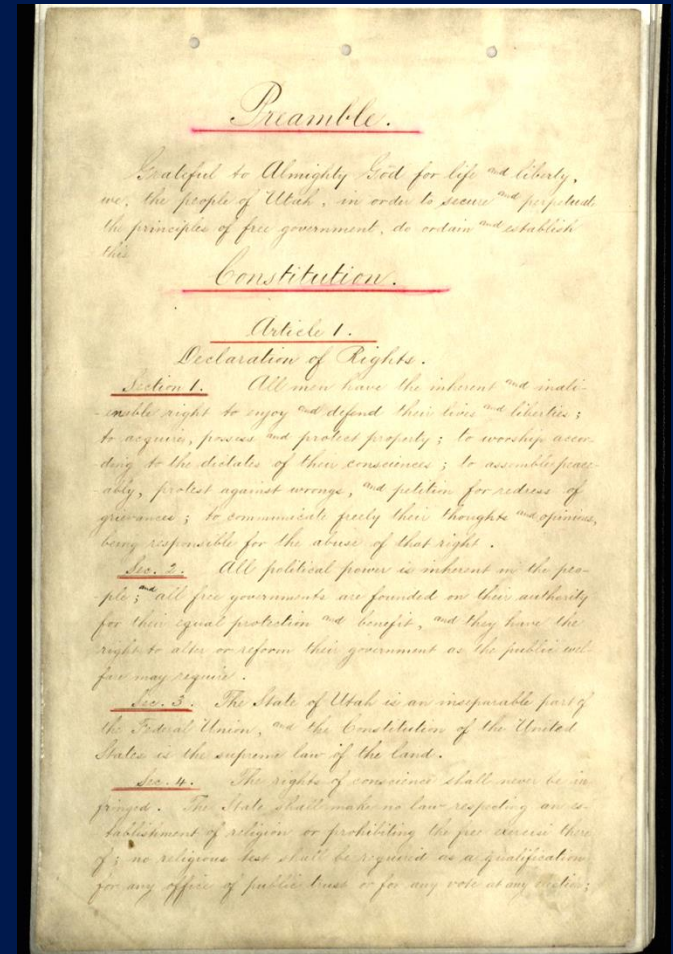 Preamble.
Grateful to Almighty God for life and liberty,
we, the people of Utah, in order to secure and perpetuate
the principles of free government, do ordain and establish
this
Constitution.
Article 1.
Declaration of Rights.
Section 1. All men have the inherent and inali-
-enable right to enjoy and defend their lives and liberties;
to acquire, possess and protect property; to worship accor-
ding to the dictates of their consciences; to assemble peace-
-ably, protest against wrongs, and petition for redress of
grievances; to communicate freely their thoughts and opinions,
being responsible for the abuse of that right.
Sec. 2. All political power is inherent in the peo-
-ple; and all free governments are founded on their authority
for their equal protection and benefit, and they have the
right to alter or reform their government as the public wel-
fare may require.
Sec. 3. The State of Utah is an inseparable part of
the Federal Union, and the Constitution of the United
States is the supreme law of the land.
Sec. 4. The rights of conscience shall never be in-
fringed. The State shall make no law respecting an es-
tablishment of religion or prohibiting the free exercise there
of; no religious test shall be required as a qualification
for any office of public trust or for any vote at any election;